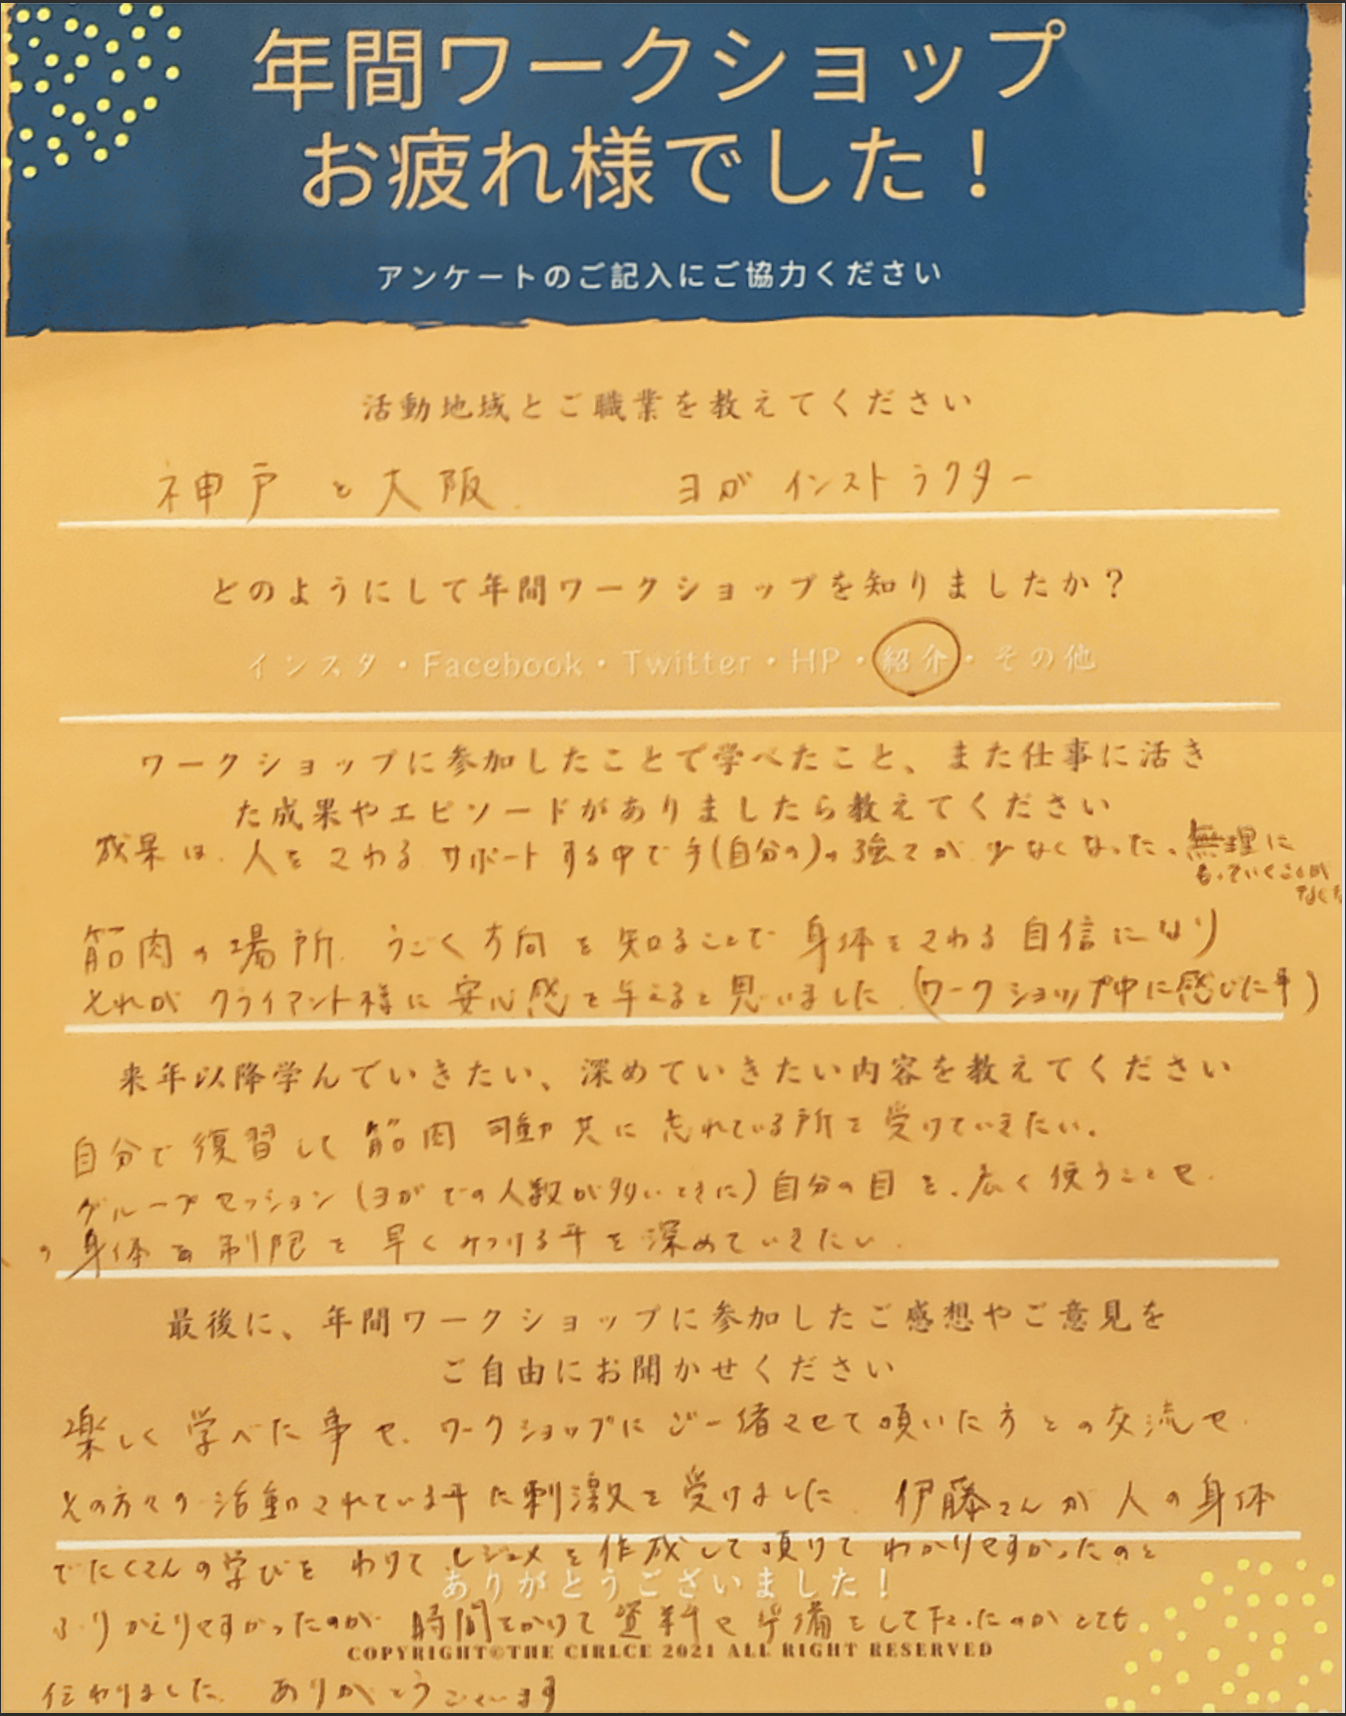 年間ワークショップ
お疲れ様でした！
アンケートのご記入にご協力ください
活動地域とご職業を教えてください
神戸と大阪. ヨガインストラクター
どのようにして年間ワークショップを知りましたか？
インスタ・Facebook・Twitter・HP・紹介・その他
ワークショップに参加したことで学べたこと、また仕事に活き
た成果やエピソードがありましたら教えてください
成果は、人をさわるサポートする中で手(自分の)の強さが少なくなった、無理に
もっていくことが
なくな
筋肉の場所、うごく方向を知ることで身体をさわる自信になり
それがクライアント様に安心感を与えると思いました。(ワークショップ中に感じた事)
来年以降学んでいきたい、深めていきたい内容を教えてください
自分で復習して筋肉可動共に忘れている所を受けていきたい。
グループセッション(ヨガでの人数が多いときに)自分の目を、広く使うことや、
の身体の制限を早くみつける事を深めていきたい。
最後に、年間ワークショップに参加したご感想やご意見を
ご自由にお聞かせください
楽しく学べた事や、ワークショップにご一緒させて頂いた方との交流や、
その方々の活動されている事に刺激を受けました。伊藤さんが人の身体
でたくさんの学びを わけて レジュメを作成して頂けて わかりやすかったのと
ありがとうございました！
ふりかえりやすかったのが 時間をかけて資料や準備をして下さったのがとても
COPYRIGHT©THE CIRLCE 2021 ALL RIGHT RESERVED
伝わりました。ありがとうございます